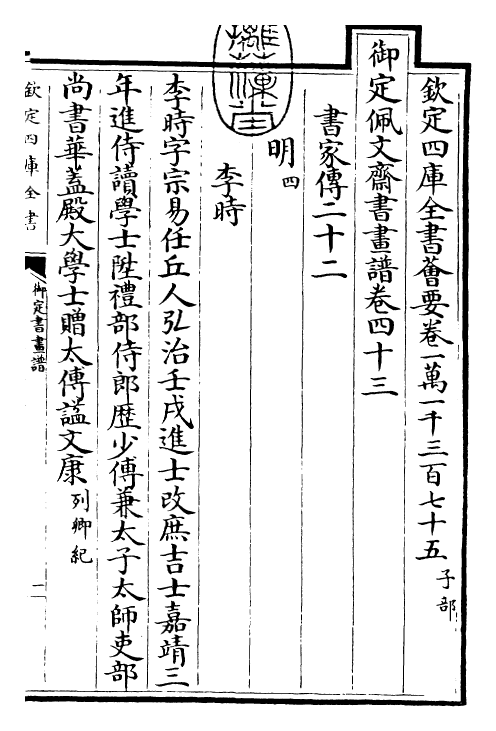 欽定四庫全書薈要卷一萬一千三百七十五 子部
御定佩文齋書畫譜卷四十三
書家傳二十二
明四
李時
李時字宗易任丘人弘治壬戌進士改庶吉士嘉靖三
年進侍讀學士陞禮部侍郎歴少傅兼太子太師吏部
尚書華蓋殿大學士贈太傅諡文康 列卿紀
欽定四庫全書
御定書畫譜